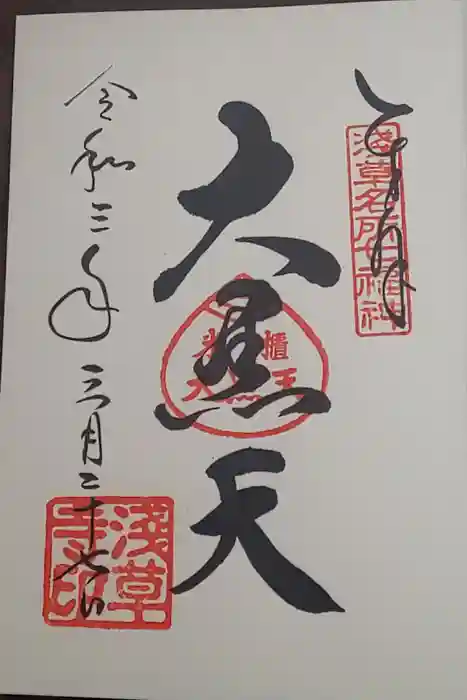 奉拝
浅草名所七福神
大黒天
令和三年三月二十七日
淺草寺印